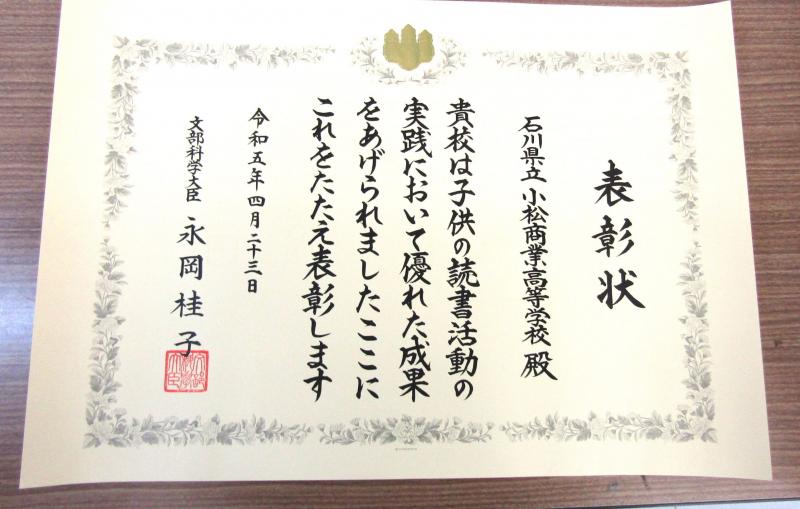 表彰状
石川県立小松商業高等学校 殿
貴校は子供の読書活動の
実践において優れた成果
をあげられましたここに
これをたたえ表彰します
令和五年四月二十三日
文部科学大臣 永岡桂子